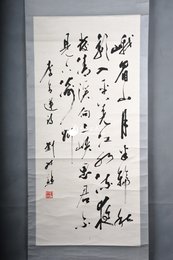 峨眉山月半輪秋
影入平羌江水流夜
發清溪向三峽思君不
見下渝州
李白詩
劉